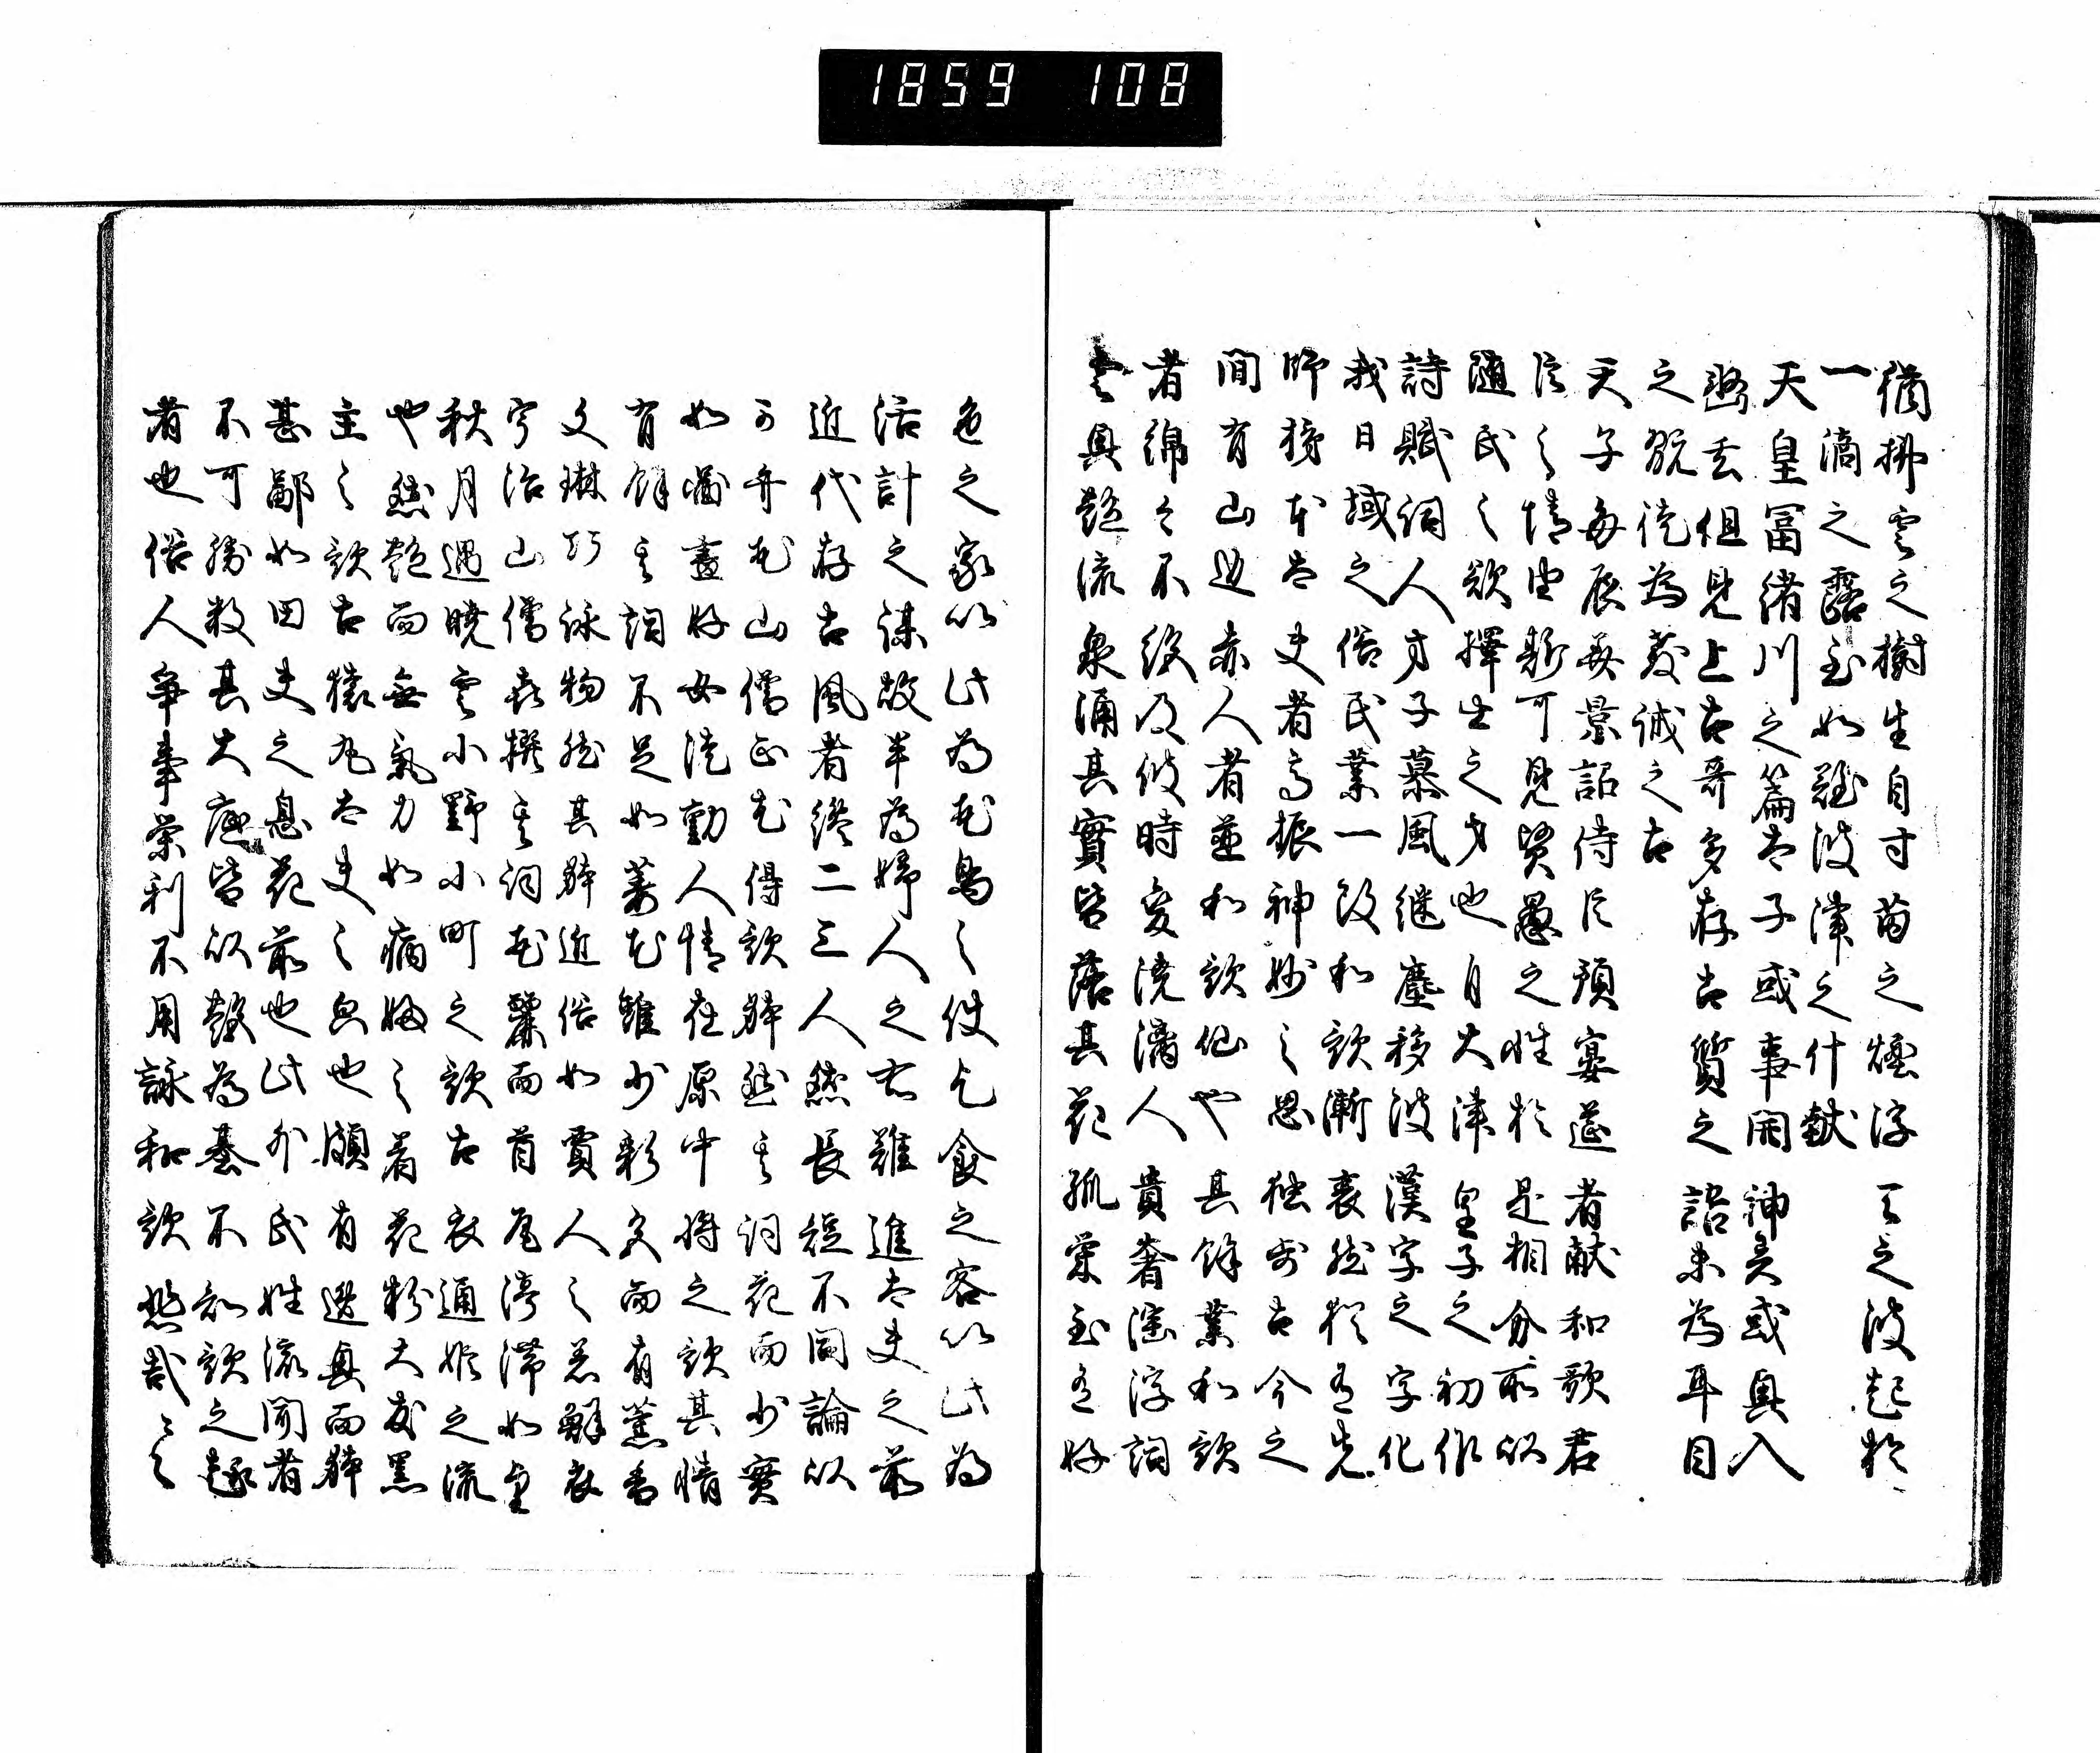 1859 108
猶拂雲之樹生自寸苗之煙浮天之波起於
一滴之露至如難波津之什献
天皇富緒川之篇太子或事開神異或興入
幽玄但見上古哥多存古質之語未為耳目
之翫徒為教誡之古
天子毎辰美景詔侍臣預宴莚者献和歌君
臣之情由斯可見賢愚之性於是相分所以
随民之欲擇士之才也自大津皇子之初作
詩賦詞人才子慕風継塵移彼漢字之字化
我日域之俗民業一改和歌漸衰然猶有先
師柿本太夫者高振神妙之思独步古今之
間有山辺赤人者並和歌仙也其餘業和歌
者綿々不絶及彼時変澆漓人貴奢淫浮詞
雲興艶流泉涌其實皆落其花孤栄至有好
色之家以此為花鳥之使乞食之客以此為
活計之謀故半為婦人之右難進大夫之前
近代存古風者纔二三人然長短不同論以
可弁花山僧正尤得歌躰然其詞花而少實
如啚畫好女徒動人情在原中将之歌其情
有餘其詞不足如萎花雖少彩色而有薫香
文琳巧詠物然其躰近俗如賈人之着鮮衣
宇治山僧喜撰其詞花麗而首尾停滞如望
秋月遇暁雲小野小町之歌古衣通姫之流
也然艶而無氣力如病婦之着花粉大友黒
主之歌古猿丸太夫之次也頗有逸興而躰
甚鄙如田夫之息花前也此外氏姓流聞者
不可勝数其大底皆以艶為基不知歌之趣
者也俗人争事栄利不用詠和歌悲哉々々